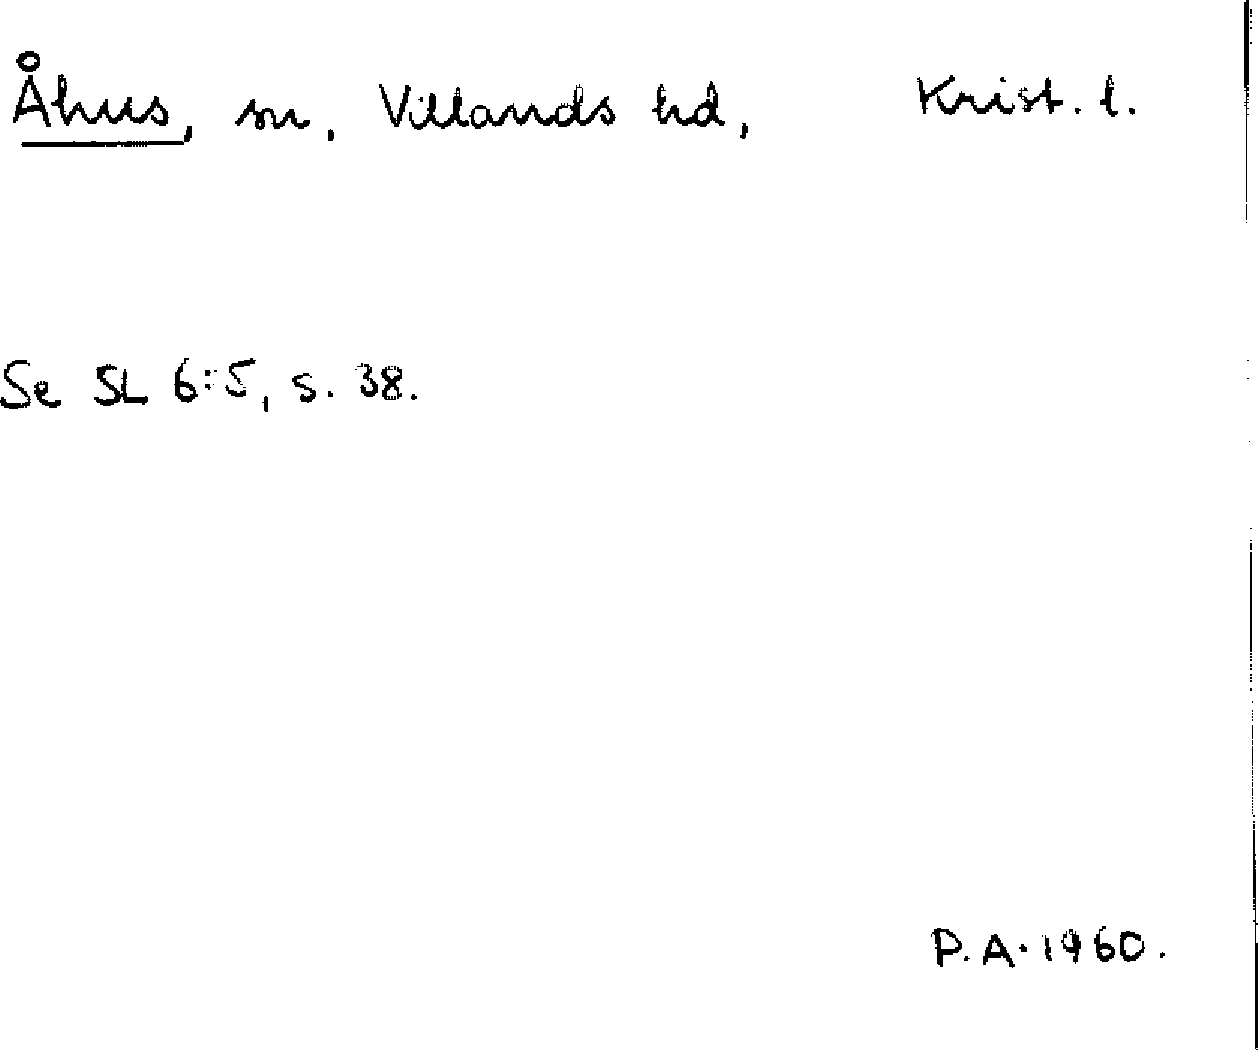 Åhus, sn, Villands hd, Krist. l.
Se SL 6:5, s. 38.
P. A. 1960.